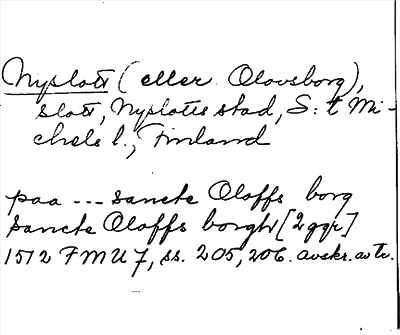 Nyslott (eller Olovsborg),
slott, Nyslotts stad, S:t Mi-
chels l., Finland
paa --- sancte Oloffs borg
sancte Oloffs borgh [2 ggr]
1512 FMU 7, ss. 205, 206. avskr. av tr.